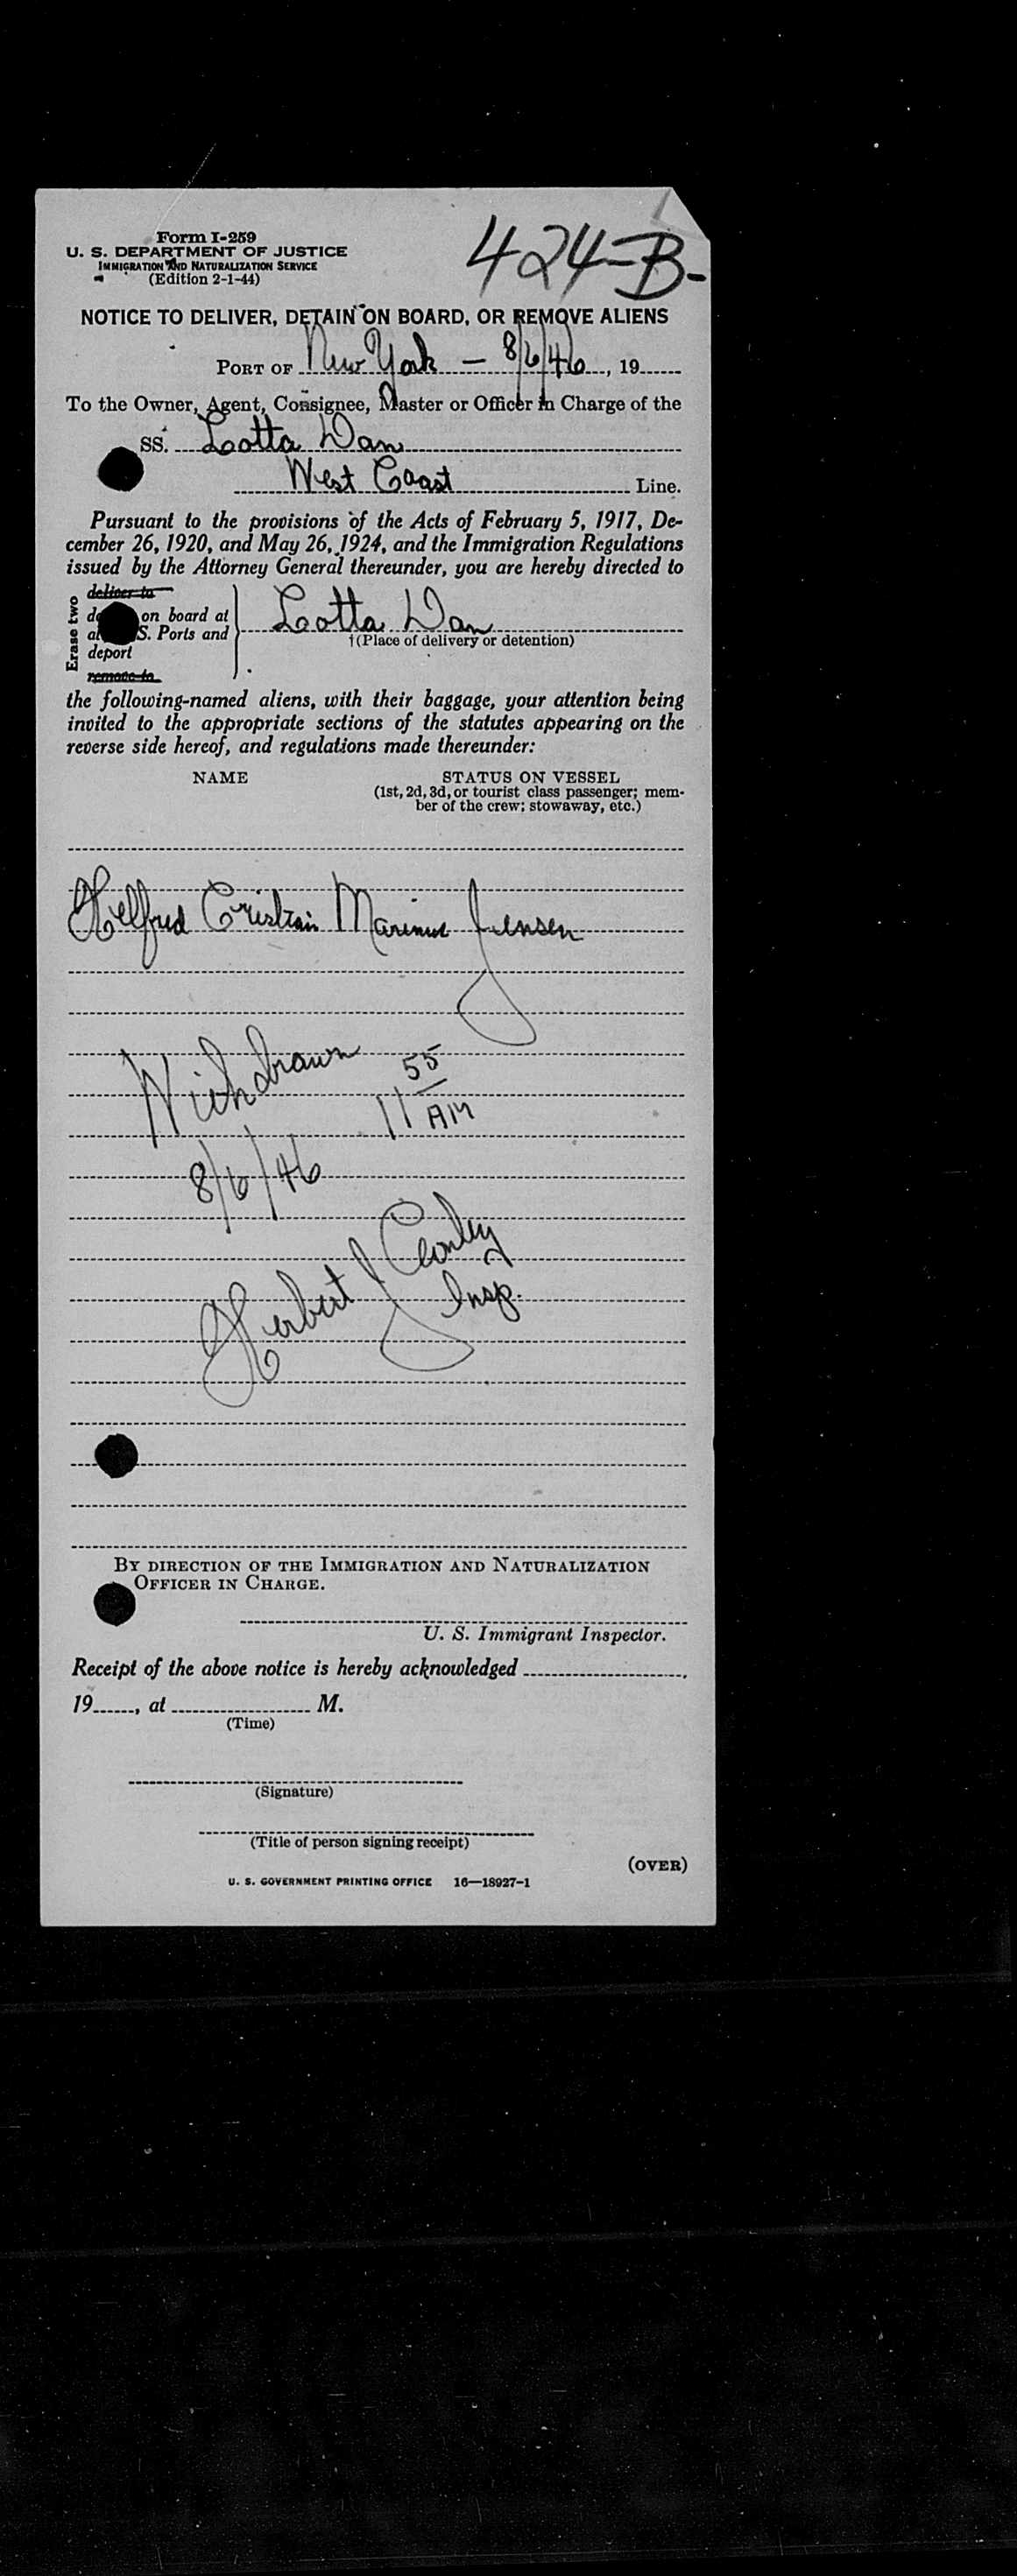 424-B-
Form I-259
U. S. DEPARTMENT OF JUSTICE
IMMIGRATION AND NATURALIZATION SERVICE
(Edition 2-1-44)
NOTICE TO DELIVER, DETAIN ON BOARD, OR REMOVE ALIENS
PORT OF New York - 8/6/46, 19
To the Owner, Agent, Consignee, Master or Officer in Charge of the
SS. Lotta Dan
West Coast Line.
Pursuant to the provisions of the Acts of February 5, 1917, De-
cember 26, 1920, and May 26, 1924, and the Immigration Regulations
issued by the Attorney General thereunder, you are hereby directed to
Erase two
deliver to
on board at
S. Ports and
deport
remove to
Lotta Dan
†(Place of delivery or detention)
the following-named aliens, with their baggage, your attention being
invited to the appropriate sections of the statutes appearing on the
reverse side hereof, and regulations made thereunder:
NAME STATUS ON VESSEL
(1st, 2d, 3d, or tourist class passenger; mem-
ber of the crew; stowaway, etc.)
Helfred Cristian Marinus Jensen
Withdrawn 11 55 AM
8/6/46
Herbert J Conley
Insp.
BY DIRECTION OF THE IMMIGRATION AND NATURALIZATION
OFFICER IN CHARGE.
U. S. Immigrant Inspector.
Receipt of the above notice is hereby acknowledged
19, at M.
(Time)
(Signature)
(Title of person signing receipt)
(OVER)
U. S. GOVERNMENT PRINTING OFFICE 16—18927-1